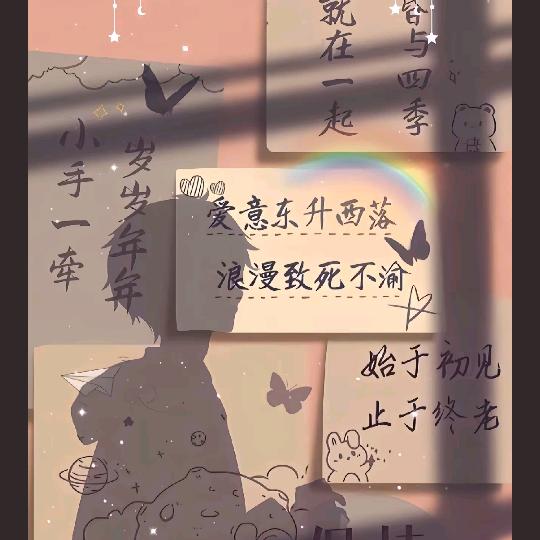 小手一牵
岁岁年年
就在一起
与四季
爱意东升西落
浪漫致死不渝
始于初见
止于终老